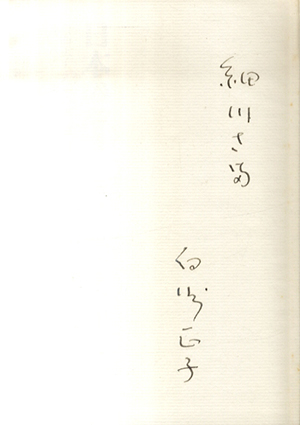 細川さま
白洲正子